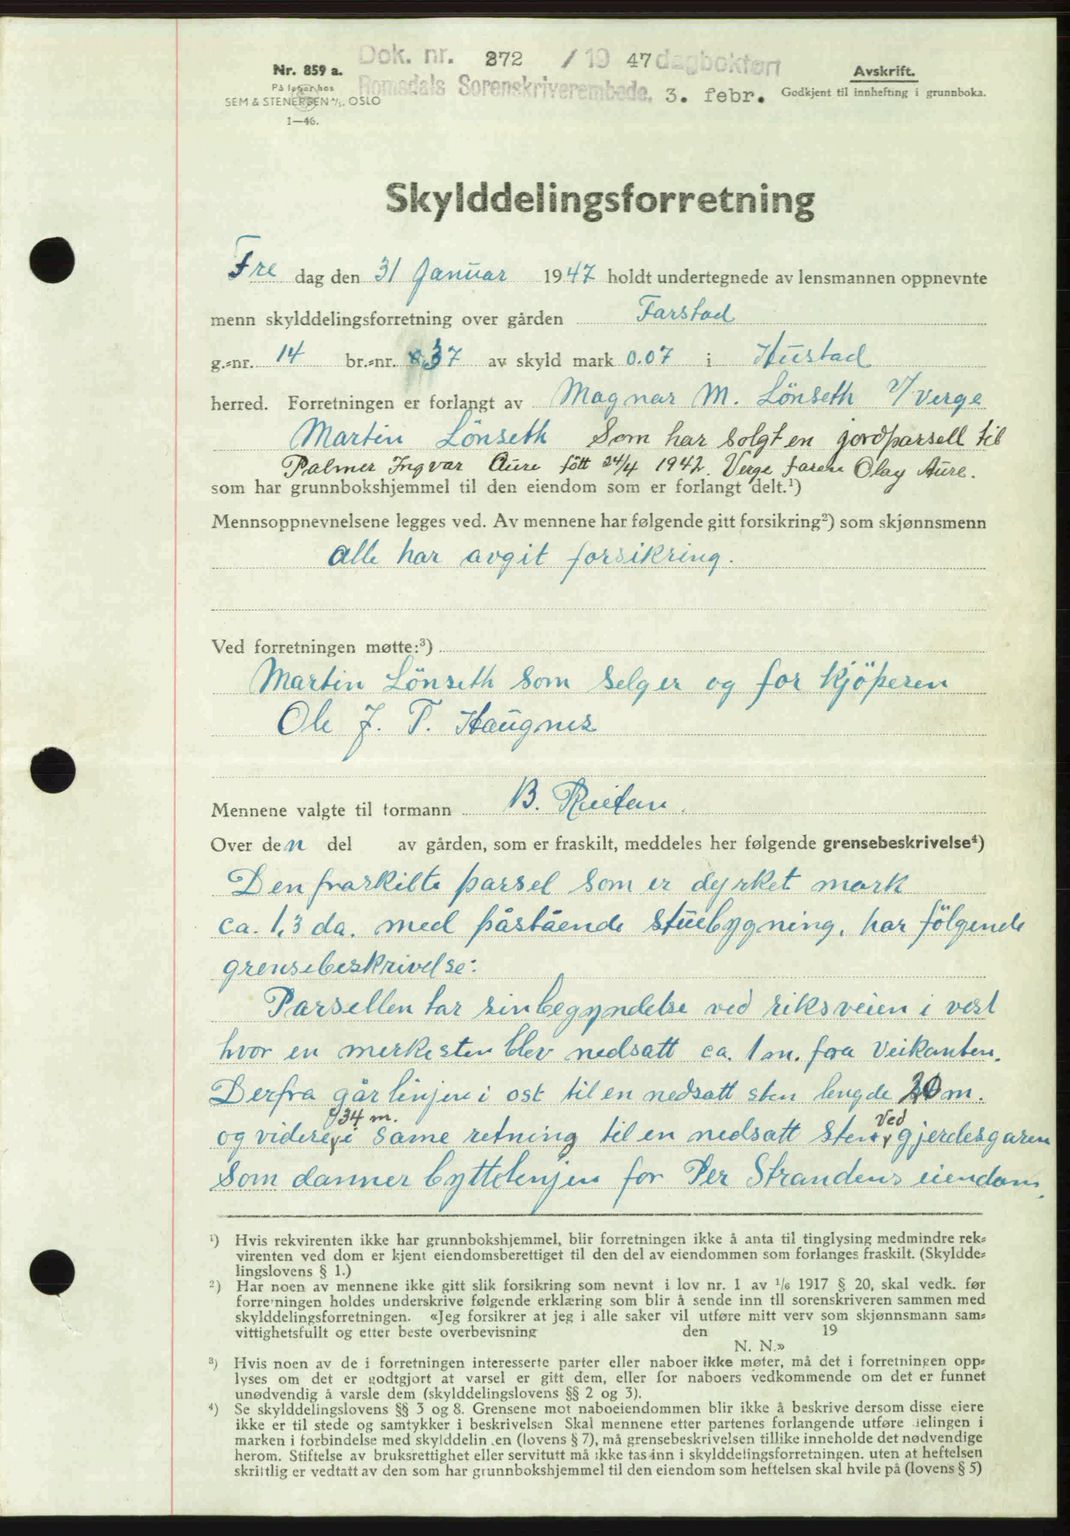 Dok. nr. 372 / 19 47 dagbokført
Nr. 859 a. Avskrift.
På lager hos Romsdals Sorenskriverembede. 3. febr. Godkjent til innhefting i grunnboka.
SEM & STENERSEN A/S, OSLO
1—46.
Skylddelingsforretning
Fre dag den 31 Januar 1947 holdt undertegnede av lensmannen oppnevnte
menn skylddelingsforretning over gården Farstad
g.-nr. 14 br.-nr. 37 av skyld mark 0.07 i Hustad
herred. Forretningen er forlangt av Magnar M. Lönseth v/ Verge
Martin Lönseth Som har solgt en jordparsell til
Palmer Ingvar Aure fött 24/4 1942. Verge faren Olav Aure.
som har grunnbokshjemmel til den eiendom som er forlangt delt.¹)
Mennsoppnevnelsene legges ved. Av mennene har følgende gitt forsikring²) som skjønnsmenn
alle har avgit forsikring.
Ved forretningen møtte:³)
Martin Lönseth som selger og for kjöperen
Ole J. T. Haugnes
Mennene valgte til formann B. Reiten.
Over den del av gården, som er fraskilt, meddeles her følgende grensebeskrivelse⁴)
Den fraskilte parsel som er dyrket mark
ca. 1,3 da. med påstående stuebygning, har fölgende
grensebeskrivelse:
Parsellen tar sin begyndelse ved riksveien i vest
hvor en merkesten blev nedsatt ca. 1 m. fra veikanten.
Derfra går linjen i ost til en nedsatt sten lengde 20 m.
og videre 34 m. i same retning til en nedsatt sten ved gjerdesgaren
Som danner byttelinjen for Per Strandens eiendom.
¹) Hvis rekvirenten ikke har grunnbokshjemmel, blir forretningen ikke å anta til tinglysing medmindre rek-
virenten ved dom er kjent eiendomsberettiget til den del av eiendommen som forlanges fraskilt. (Skyldde-
lingslovens § 1.)
²) Har noen av mennene ikke gitt slik forsikring som nevnt i lov nr. 1 av ¹/₆ 1917 § 20, skal vedk. før
forretningen holdes underskrive følgende erklæring som blir å sende inn til sorenskriveren sammen med
skylddelingsforretningen. «Jeg forsikrer at jeg i alle saker vil utføre mitt verv som skjønnsmann sam-
vittighetsfullt og etter beste overbevisning den 19
N. N.»
³) Hvis noen av de i forretningen interesserte parter eller naboer ikke møter, må det i forretningen opp-
lyses om det er godtgjort at varsel er gitt dem, eller for naboers vedkommende om det er funnet
unødvendig å varsle dem (skylddelingslovens §§ 2 og 3).
⁴) Se skylddelingslovens §§ 3 og 8. Grensene mot naboeiendommen blir ikke å beskrive dersom disse eiere
ikke er til stede og samtykker i beskrivelsen Skal mennene etter partenes forlangende utføre delingen i
marken i forbindelse med skylddelingen (lovens § 7), må grensebeskrivelsen tillike inneholde det nødvendige
herom. Stiftelse av bruksrettighet eller servitutt må ikke tas inn i skylddelingsforretningen. uten at heftelsen
skriftlig er vedtatt av den som har grunnbokshjemmel til den eiendom som heftelsen skal hvile på (lovens § 5)